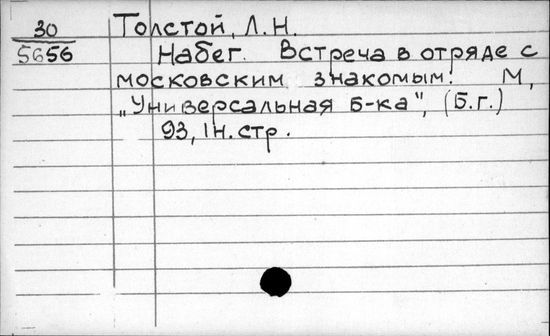 30 Толстой, Л.Н.
5656 Набег. Встреча в отряде с
московским знакомым. М,
„Универсальная б-ка", (Б.г.)
93, Iн.стр.